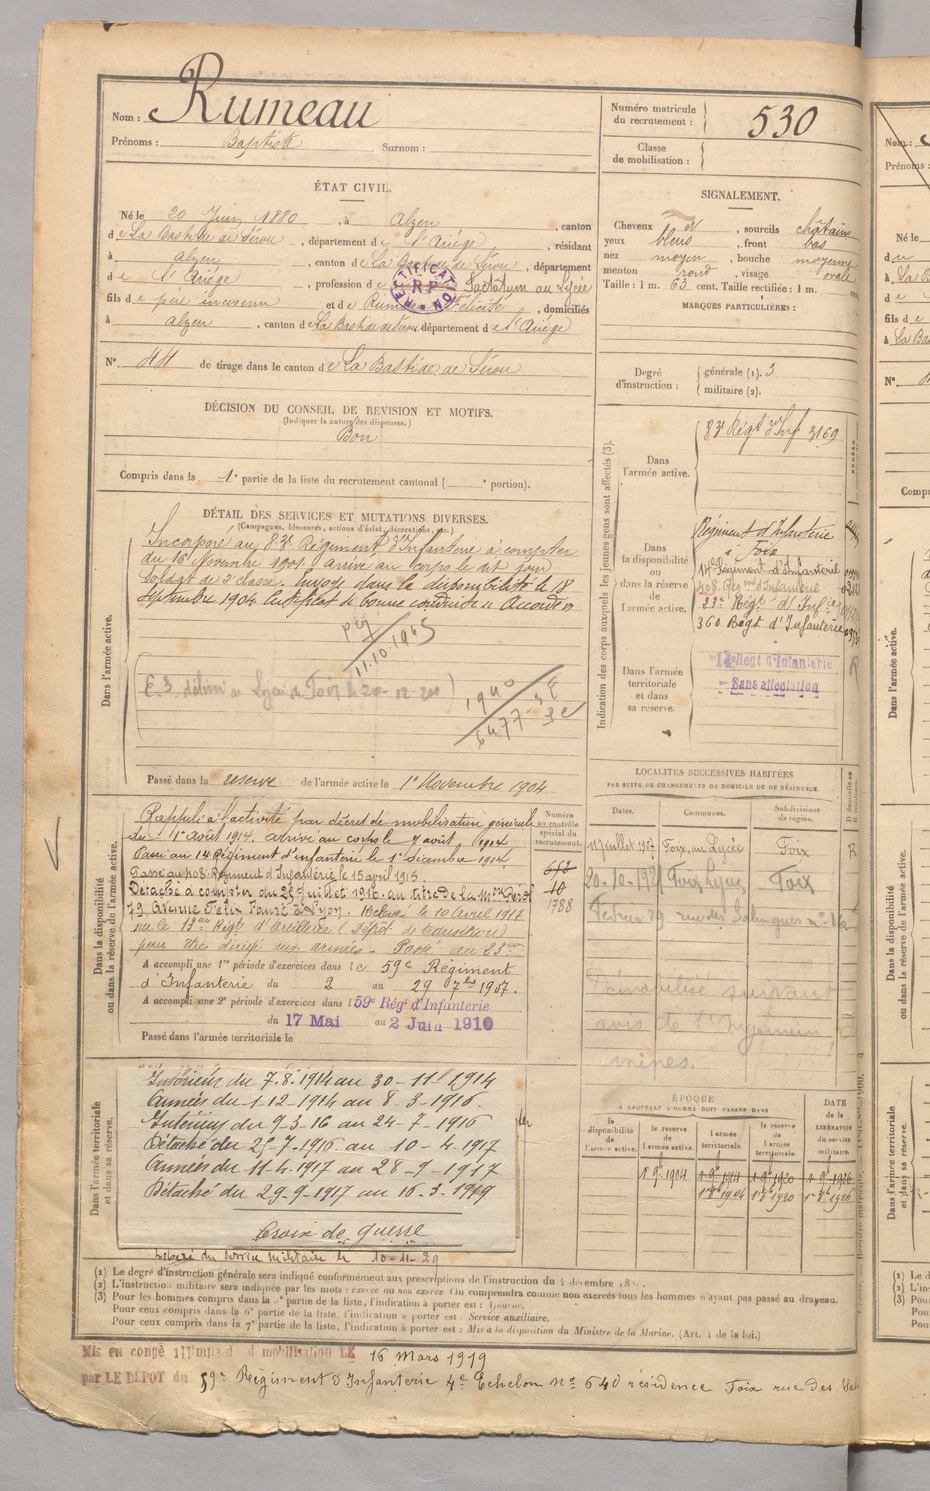 Nom : Rumeau
Prénoms : Baptiste Surnom :
Numéro matricule du recrutement : 530
Classe de mobilisation :
ÉTAT CIVIL.
Né le 20 Juin 1880, à Alzen, canton
de La Bastide de Sérou, département de l'Ariège, résidant
à Alzen, canton de La Bastide de Sérou, département
de l'Ariège, profession de Factotum au Lycée
fils de père inconnu et de Rumeau Félicité, domiciliés
à Alzen, canton de La Bastide de Sérou département de l'Ariège
N° 44 de tirage dans le canton de La Bastide de Sérou
RECTIFICATION R.P.
SIGNALEMENT.
Cheveux et, sourcils châtains
yeux bleus, front bas
nez moyen, bouche moyenne
menton rond, visage ovale
Taille : 1 m. 63 cent. Taille rectifiée : 1 m. cent.
MARQUES PARTICULIÈRES :
Degré d'instruction : générale (1). 3
militaire (2).
DÉCISION DU CONSEIL DE REVISION ET MOTIFS.
(Indiquer la nature des dispenses.)
Bon
Compris dans la 1e partie de la liste du recrutement cantonal ( e portion).
DÉTAIL DES SERVICES ET MUTATIONS DIVERSES.
(Campagnes, blessures, actions d'éclat, décorations, etc.)
Dans l'armée active.
Incorporé au 83e Régiment d'Infanterie à compter
du 16 Novembre 1901. arrivé au corps le dit jour
soldat de 2e classe. Envoyé dans la disponibilité le 18
Septembre 1904 Certificat de bonne conduite « Accordé »
11.10.1945
Passé dans la réserve de l'armée active le 1er Novembre 1904
Indication des corps auxquels les jeunes gens sont affectés (3).
Dans l'armée active.
83e Régt d'Inf 3169
Dans la disponibilité ou dans la réserve de l'armée active.
Régiment d'Infanterie
à Foix
14e Régiment d'Infanterie
408 Régmt d'Infanterie
23e Régt d'Infie
360 Régt d'Infanterie
Dans l'armée territoriale et dans sa réserve.
14e Régt d'Infanterie
Sans affectation
LOCALITÉS SUCCESSIVES HABITÉES
PAR SUITE DE CHANGEMENTS DE DOMICILE OU DE RÉSIDENCE.
Dates. Communes. Subdivisions de région.
11 juillet 1907 Foix, au Lycée Foix
Foix Lycée Foix
Février 29 rue des Salenques
Démobilisé suivant
avis de l'Ingénieur
mines.
Dans la disponibilité ou dans la réserve de l'armée active.
Numéro au contrôle spécial du recrutement.
1788
Rappelé à l'activité par décret de mobilisation générale
du 1er août 1914. arrivé au corps le 7 août 1914
Passé au 14 Régiment d'infanterie le 1er décembre 1914
Passé au 408 Régiment d'Infanterie le 15 avril 1915.
Détaché à compter du 25 juillet 1916 au titre de la Mson
79, Avenue Félix Faure à Lyon. Relevé le 10 avril 1917
sur le 13e Régt d'artillerie (Dépôt de transition)
pour être dirigé aux armées. Passé au 23e
A accompli une 1re période d'exercices dans le 59e Régiment
d'Infanterie du 2 au 29 7bre 1907.
A accompli une 2e période d'exercices dans l 59e Régt d'Infanterie
du 17 Mai au 2 Juin 1910
Passé dans l'armée territoriale le
Dans l'armée territoriale et dans sa réserve.
Intérieur du 7.8.1914 au 30-11-1914
Armées du 1-12-1914 au 8-3-1916.
Intérieur du 9-3-16 au 24-7-1916
Détaché du 25-7-1916 au 10-4-1917
Armées du 11-4-1917 au 28-9-1917
Détaché du 29-9-1917 au 16-3-1919
Croix de guerre
Libéré du service militaire le 10-11-29
ÉPOQUE
À LAQUELLE L'HOMME DOIT PASSER DANS
la disponibilité de l'armée active. la réserve de l'armée active. l'armée territoriale. la réserve de l'armée territoriale.
DATE de la LIBÉRATION du service militaire.
(1) Le degré d'instruction générale sera indiqué conformément aux prescriptions de l'instruction du 4 décembre
(2) L'instruction militaire sera indiquée par les mots : exercé ou non exercé. On comprendra comme non exercés tous les hommes n'ayant pas passé au drapeau.
(3) Pour les hommes compris dans la partie de la liste, l'indication à porter est : Ajourné.
Pour ceux compris dans la 6e partie de la liste, l'indication à porter est : Service auxiliaire.
Pour ceux compris dans la 7e partie de la liste, l'indication à porter est : Mis à la disposition du Ministre de la Marine. (Art. 4 de la loi.)
Mis en congé illimité de démobilisation LE 16 Mars 1919
par LE DÉPOT du 59e Régiment d'Infanterie 4e Echelon no 640 résidence Foix rue des